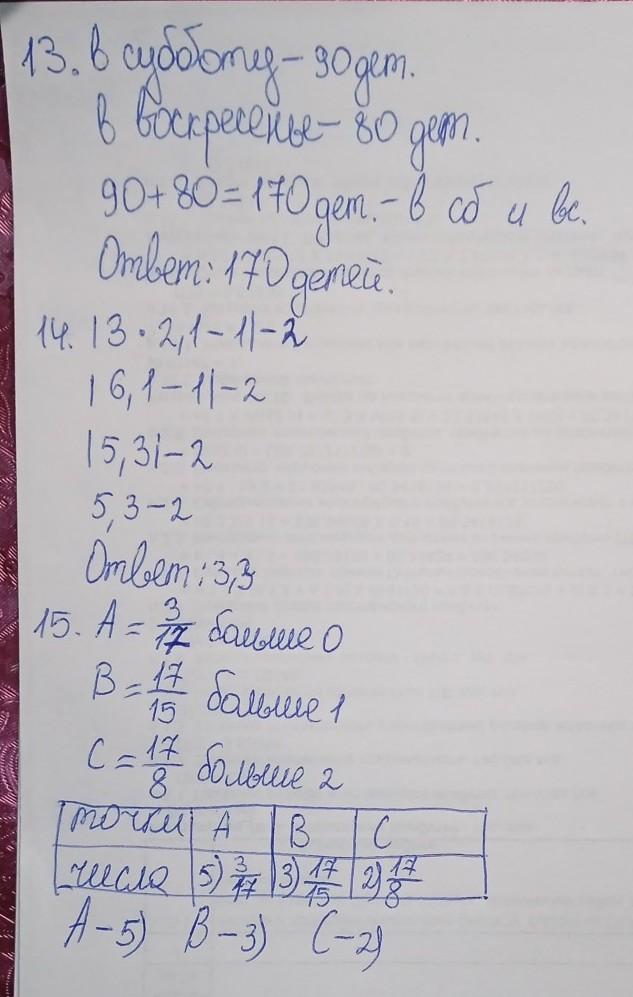 13. в субботу – 90 дет.
в воскресенье – 80 дет.
90 + 80 = 170 дет. – в сб и вс.
Ответ: 170 детей.
14. |3 · 2,1 – 1| – 2
|6,1 – 1| – 2
|5,3| – 2
5,3 – 2
Ответ: 3,3
15. A = 3/17 больше 0
B = 17/15 больше 1
C = 17/8 больше 2
точки A B C
числа 5) 3/17 3) 17/15 2) 17/8
A – 5) B – 3) C – 2)